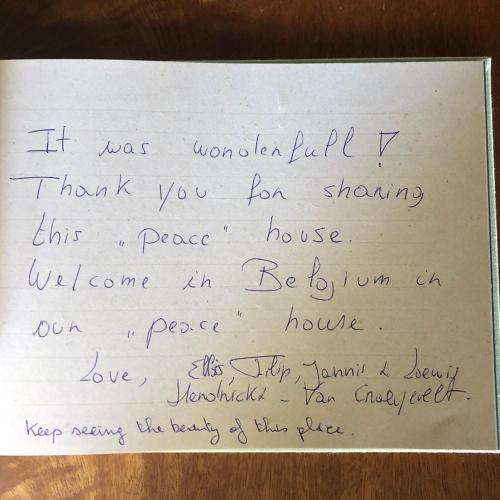 It was wonderfull!
Thank you for sharing
this „peace" house.
Welcome in Belgium in
our „peace" house.
Love, Filip, Jannis &
Hendrickx - Van
Keep seeing the beauty of this place.